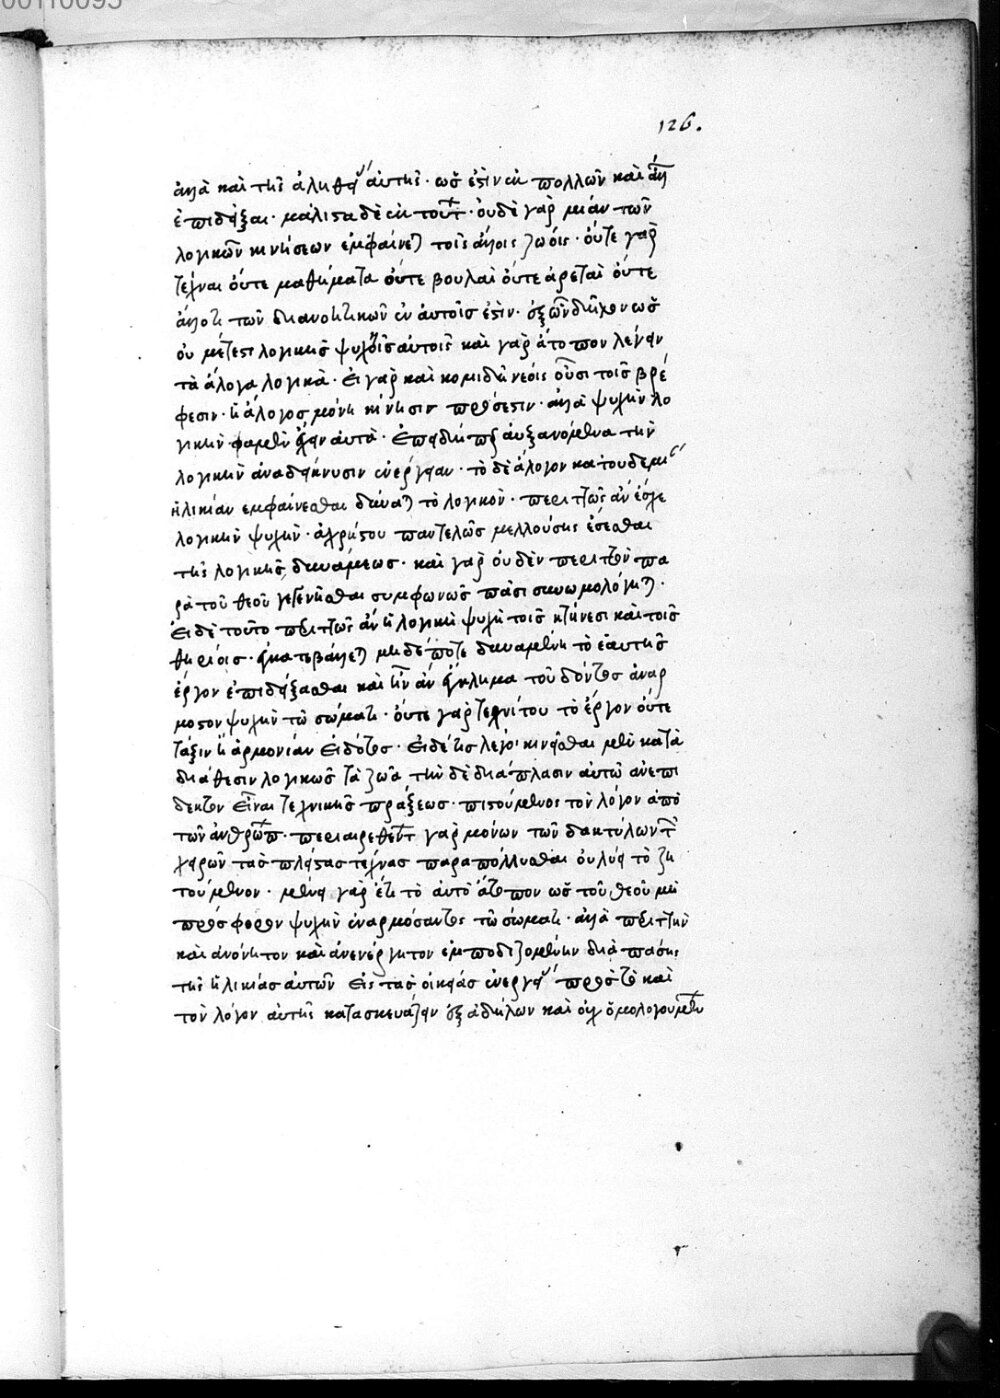 00110093
126.
ἀλλὰ καὶ τῆς ἀληθείας αὐτῆς· ὡς ἔστιν ἐκ πολλῶν καὶ ἄλλων
ἐπιδεῖξαι· μάλιστα δὲ ἐκ τούτων· οὐδὲ γὰρ μίαν τῶν
λογικῶν κινήσεων ἐμφαίνεται τοῖς ἄλλοις ζώοις· οὔτε γὰρ
τέχναι οὔτε μαθήματα οὔτε βουλαὶ οὔτε ἀρεταὶ οὔτε
ἄλλο τι τῶν διανοητικῶν ἐν αὐτοῖς ἐστιν· ἐξ ὧν δῆλον ὡς
οὐ μέτεστι λογικῆς ψυχῆς αὐτοῖς καὶ γὰρ ἄτοπον λέγειν
τὰ ἄλογα λογικά· εἰ γὰρ καὶ κομιδῆ νέοις οὖσι τοῖς βρέ
φεσιν· ἡ ἄλογος μόνη κίνησιν πρόσεστιν· ἀλλὰ ψυχὴν λο
γικὴν φαμὲν ἔχειν αὐτά· ἐπειδήπερ αὐξανόμενα τὴν
λογικὴν ἀναδείκνυσιν ἐνέργειαν· τὸ δὲ ἄλογον κατ' οὐδεμίαν
ἡλικίαν ἐμφαίνεσθαι δύναται τὸ λογικόν· περιττῶς ἂν ἔσχε
λογικὴν ψυχήν· ἀχρήστου παντελῶς μελλούσης ἔσεσθαι
τῆς λογικῆς δυνάμεως· καὶ γὰρ οὐδὲν περιττὸν πα
ρὰ τοῦ θεοῦ γεγενῆσθαι συμφώνως πᾶσι συνωμολόγηται·
εἰ δὲ τοῦτο περιττῶς ἂν ἡ λογικὴ ψυχὴ τοῖς κτήνεσι καὶ τοῖς
θηρίοις· ἐγκατεβάλλεται μηδέποτε δυναμένη τὸ ἑαυτῆς
ἔργον ἐπιδείξασθαι καὶ ἦν ἂν ἔγκλημα τοῦ δόντος ἀναρ
μοστον ψυχὴν τῶ σώματι· οὔτε γὰρ τεχνίτου τὸ ἔργον οὔτε
τάξιν ἢ ἁρμονίαν εἰδότος· εἰ δέ τις λέγοι κινεῖσθαι μὲν κατὰ
διάθεσιν λογικῶς τὰ ζῶα τὴν δὲ διάπλασιν αὐτῶ ἀνεπι
δεκτον εἶναι τεχνικῆς πράξεως· πιστούμενος τὸν λόγον ἀπὸ
τῶν ἀνθρώπων· περιαιρεθέντων γὰρ μόνων τῶν δακτύλων τῶν
χειρῶν τὰς πλείστας τέχνας παραπόλλυσθαι οὐ λύει τὸ ζη
τούμενον· μένει γὰρ ἔτι τὸ αὐτὸ ἄτοπον ὡς τοῦ θεοῦ μὴ
πρόσφορον ψυχὴν ἐναρμόσαντος τῶ σώματι· ἀλλὰ περιττὴν
καὶ ἀνόνητον καὶ ἀνενέργητον ἐμποδιζομένην διὰ πάσης
τῆς ἡλικίας αὐτῶν εἰς τὰς οἰκείας ἐνεργείας πρὸς τῶ καὶ
τὸν λόγον αὐτῆς κατασκευάζειν ἐξ ἀδήλων καὶ οὐχ ὁμολογουμένων